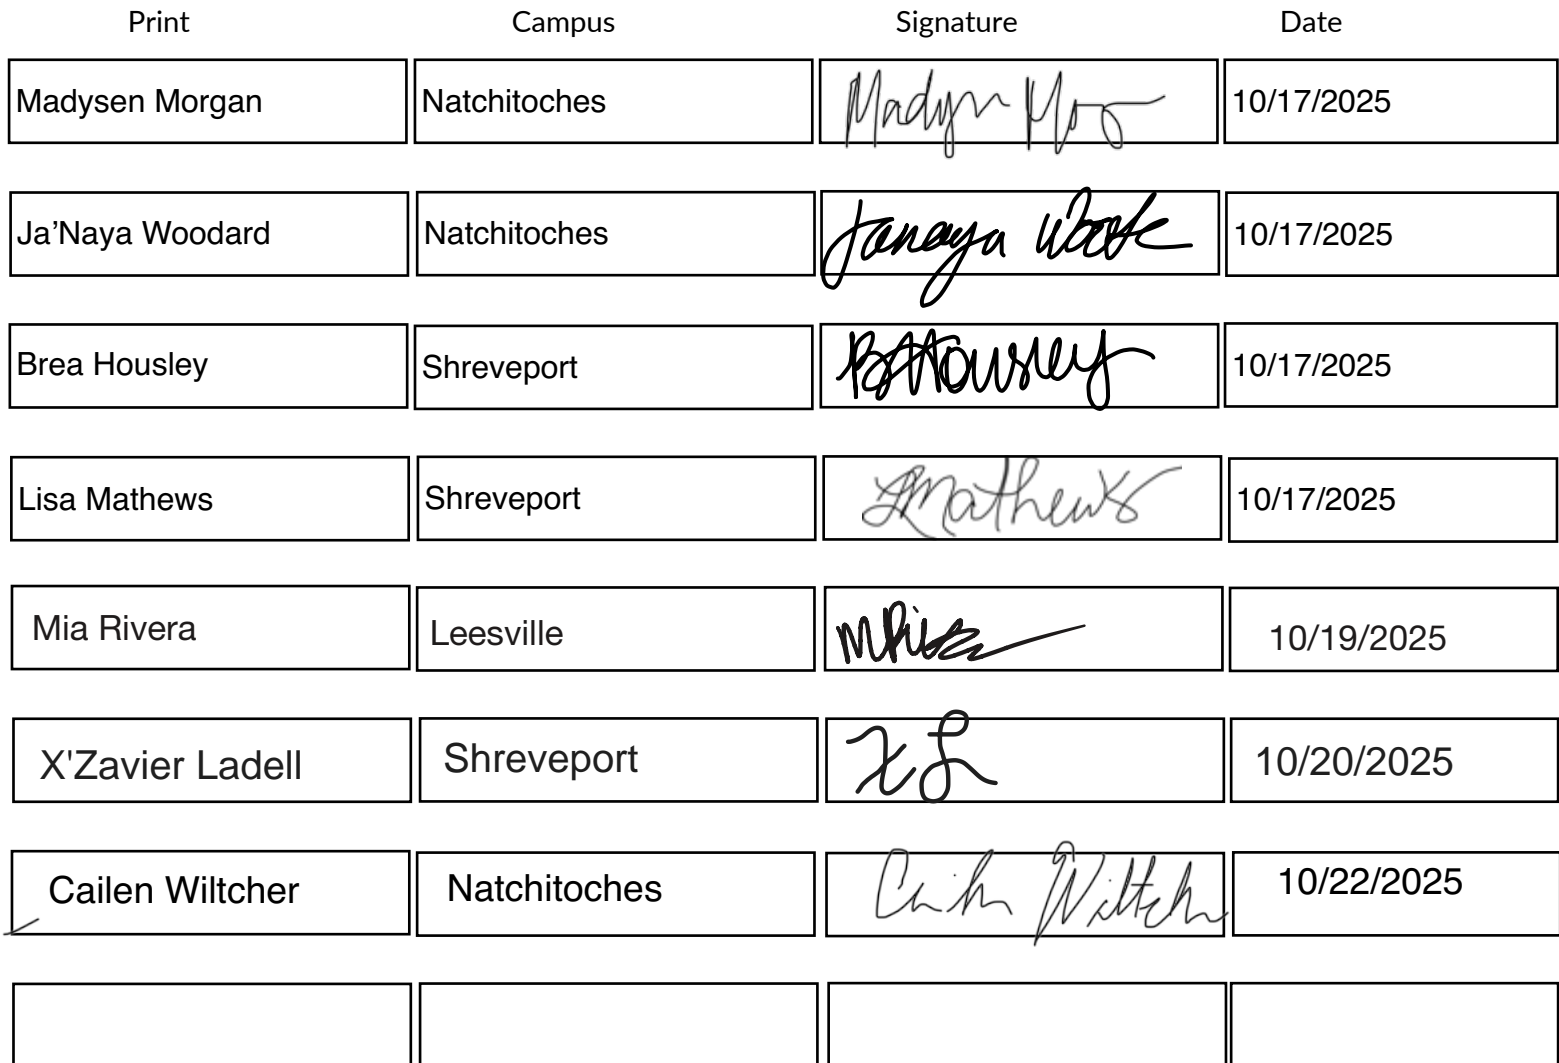 Print Campus Signature Date
Madysen Morgan Natchitoches Madysn Mor 10/17/2025
Ja’Naya Woodard Natchitoches Janaya 10/17/2025
Brea Housley Shreveport BHousley 10/17/2025
Lisa Mathews Shreveport LMathews 10/17/2025
Mia Rivera Leesville 10/19/2025
X'Zavier Ladell Shreveport XL 10/20/2025
Cailen Wiltcher Natchitoches 10/22/2025